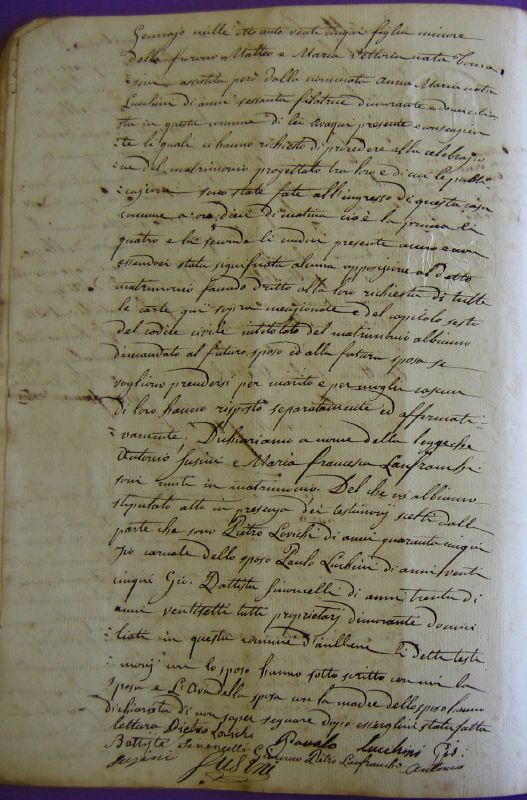 Gennajo mille otto cento venti cinque figlia minore
delli furono Matteo e Maria Vittoria nata
assistita però dalla nominata Anna Maria nata
Lucchini di anni sessanta filatrice dimorante e domicilia
ta in questa comune di lei ava qui presente e consenzien
te li quali ci hanno richiesto di procedere alla celebrazio
ne del matrimonio progettato tra loro e di cui le publi
cazioni sono state fatte all'ingresso di questa casa
comune a ore dieci di matina cioè la prima li
quattro e la seconda li undici presente anno e non
essendoci stata significata alcuna opposizione al detto
matrimonio facendo dritto alla loro richiesta di tutte
le carte qui sopra menzionate e del capitolo sesto
del codice civile intitolato del matrimonio abbiamo
dimandato al futuro sposo ed alla futura sposa se
vogliono prendersi per marito e per moglie
di loro hanno risposto separatamente ed affermati-
vamente; Dichiariamo a nome della legge che
Antonio Susini e Maria Francesca Lanfranchi
sono uniti in matrimonio. Del che ne abbiamo
stipulato atto in presenza dei testimonj scelti dalle
parte che sono Pietro di anni quaranta cinque
zio carnale dello sposo Paulo Luchini di anni venti
cinque Gio. Battista Simonelli di anni trenta di
anni ventisette tutti proprietarj dimorante domici
liati in questa comune d'avullene li detti testi
monj con lo sposo hanno sotto scritto con noi la
sposa e L'Ava della sposa con la madre dello sposo hanno
dichiarato di non saper segnare dopo esserglini stata fatta
lettura Pietro
Battista Simonelli Pavalo Lucchini Gio:
Susini SUSINI Pietro Lanfranchi Antonio